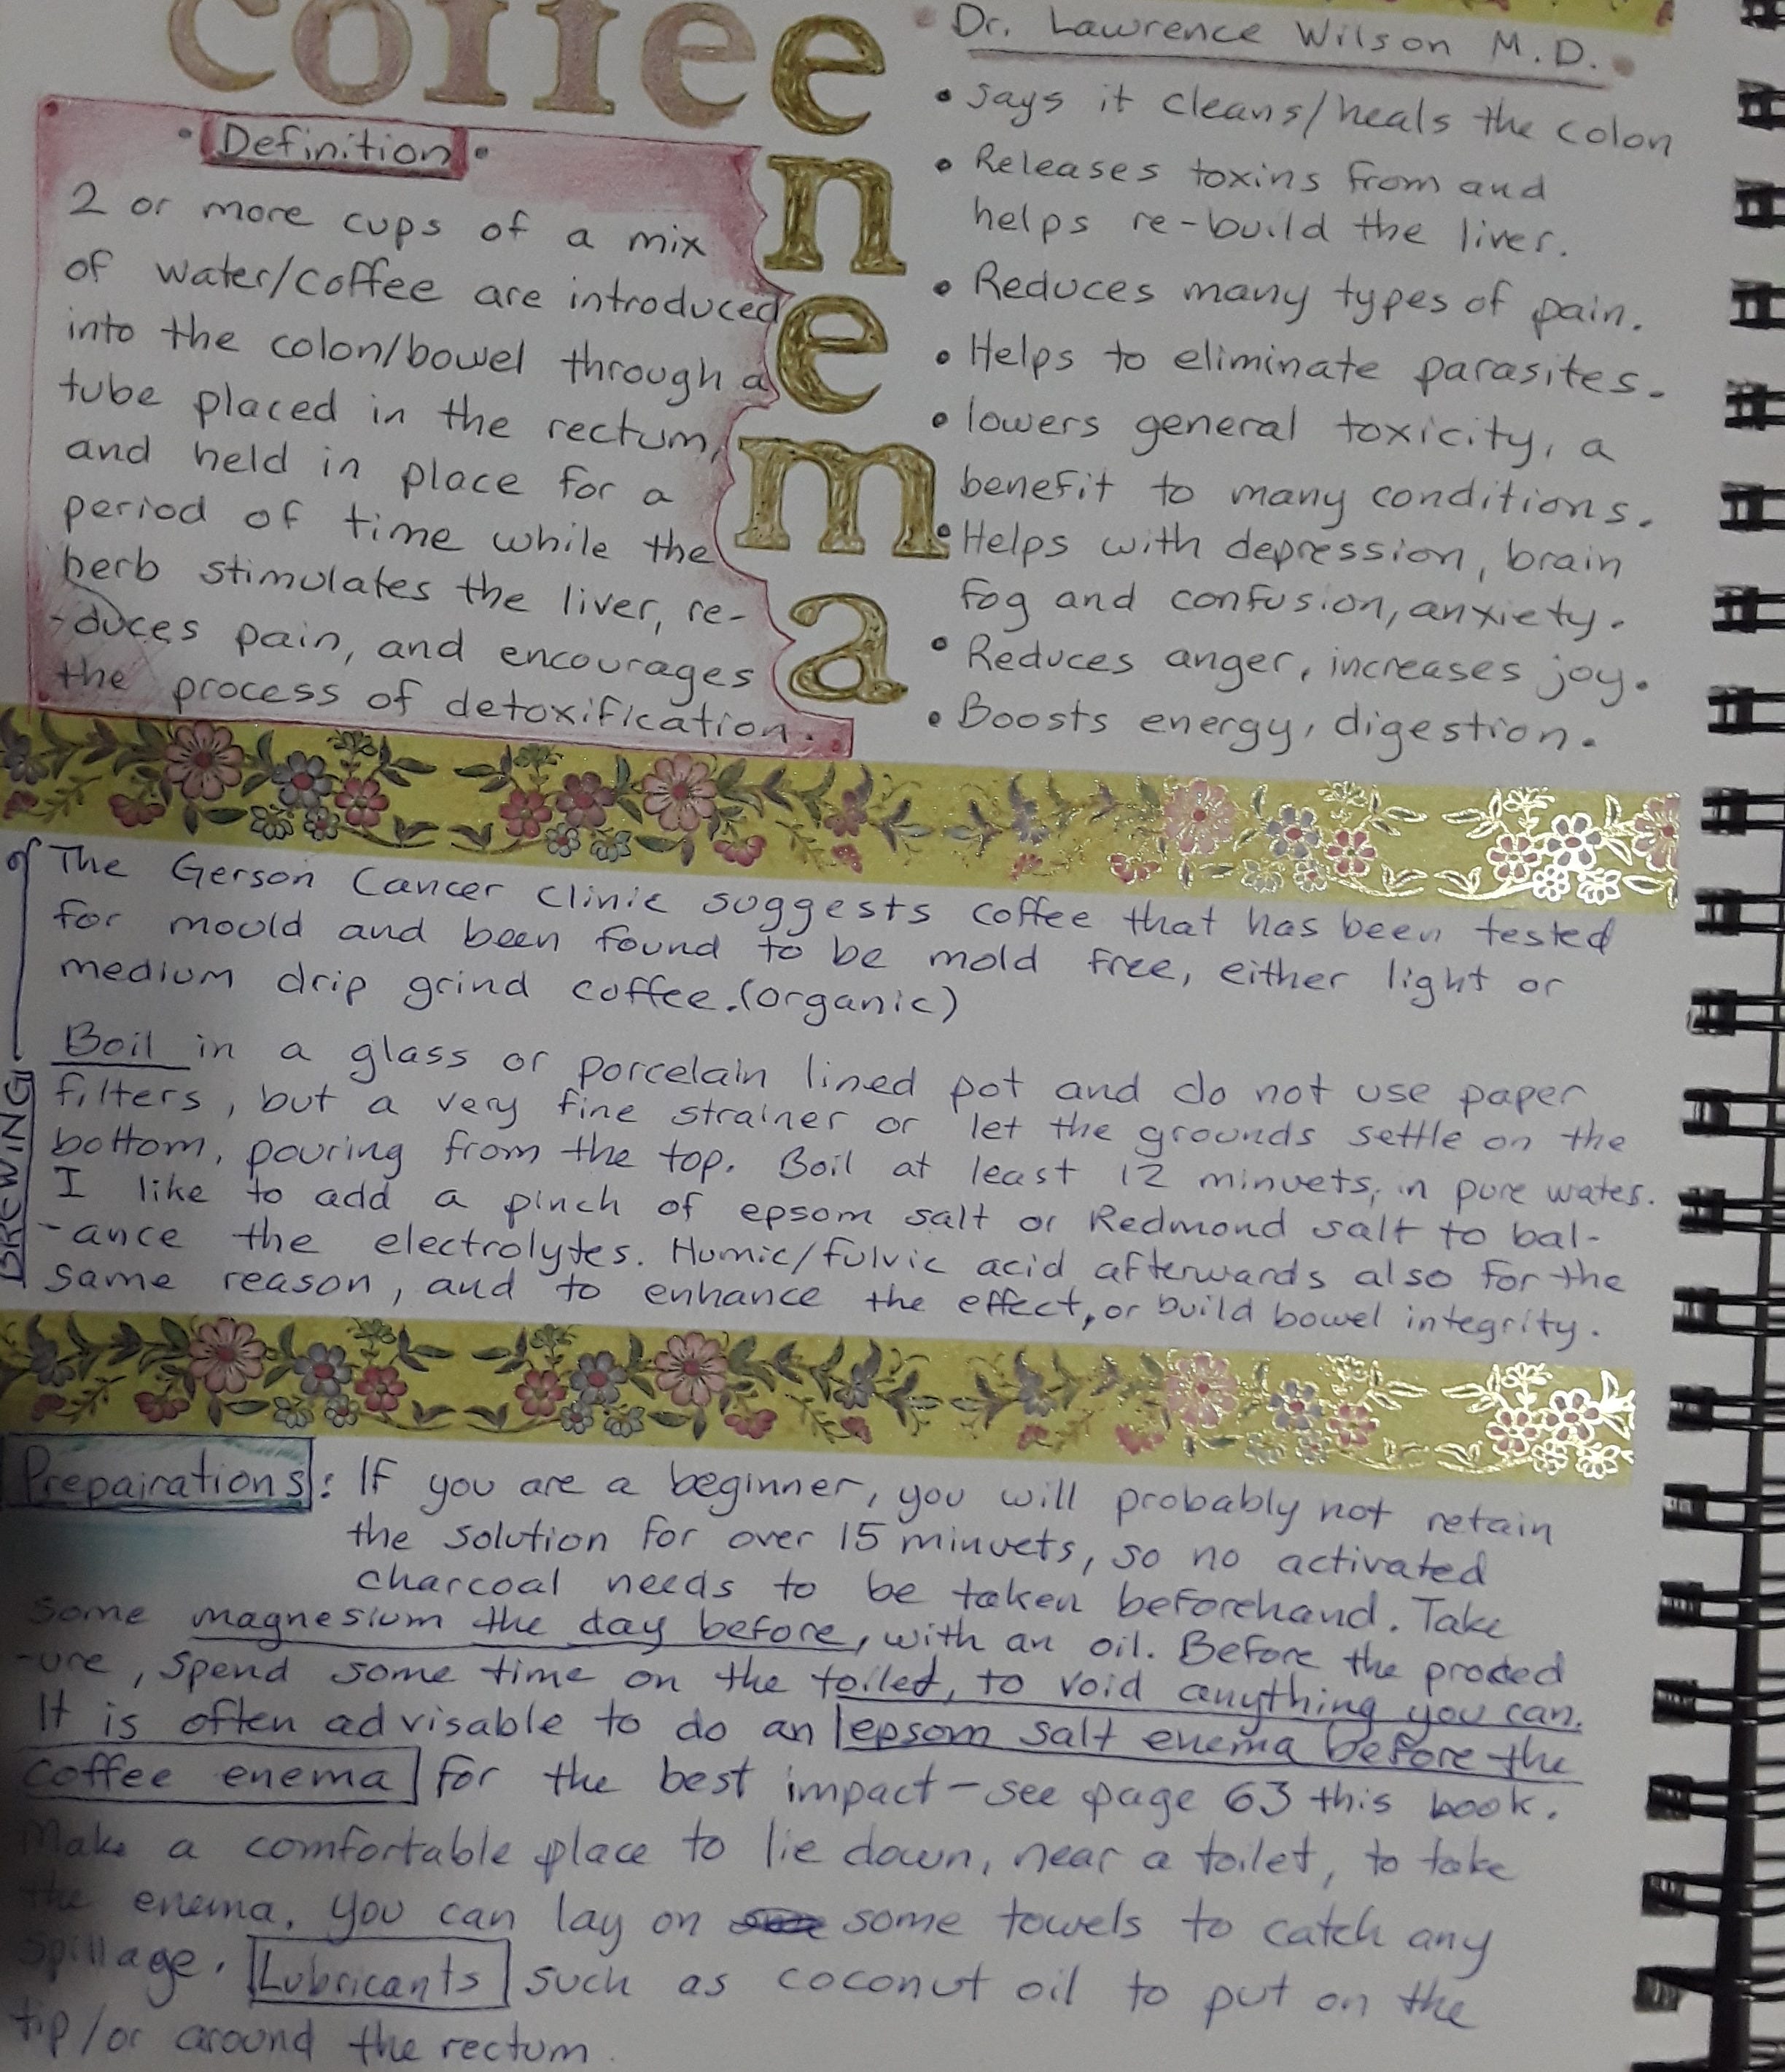 coffee
enema
• Definition •
2 or more cups of a mix
of water/coffee are introduced
into the colon/bowel through a
tube placed in the rectum,
and held in place for a
period of time while the
herb stimulates the liver, re-
-duces pain, and encourages
the process of detoxification.
• Dr. Lawrence Wilson M.D. •
• says it cleans/heals the colon
• Releases toxins from and
helps re-build the liver.
• Reduces many types of pain.
• Helps to eliminate parasites.
• lowers general toxicity, a
benefit to many conditions.
• Helps with depression, brain
fog and confusion, anxiety.
• Reduces anger, increases joy.
• Boosts energy, digestion.
BREWING
The Gerson Cancer Clinic suggests coffee that has been tested
for mould and been found to be mold free, either light or
medium drip grind coffee. (organic)
Boil in a glass or porcelain lined pot and do not use paper
filters, but a very fine strainer or let the grounds settle on the
bottom, pouring from the top. Boil at least 12 minuets, in pure water.
I like to add a pinch of epsom salt or Redmond salt to bal-
-ance the electrolytes. Humic/fulvic acid afterwards also for the
same reason, and to enhance the effect, or build bowel integrity.
Prepairations: If you are a beginner, you will probably not retain
the solution for over 15 minuets, so no activated
charcoal needs to be taken beforehand. Take
some magnesium the day before, with an oil. Before the proced
-ure, spend some time on the toilet, to void anything you can.
It is often advisable to do an epsom salt enema before the
coffee enema for the best impact - see page 63 this book.
Make a comfortable place to lie down, near a toilet, to take
the enema. You can lay on some towels to catch any
spillage. Lubricants such as coconut oil to put on the
tip/or around the rectum.